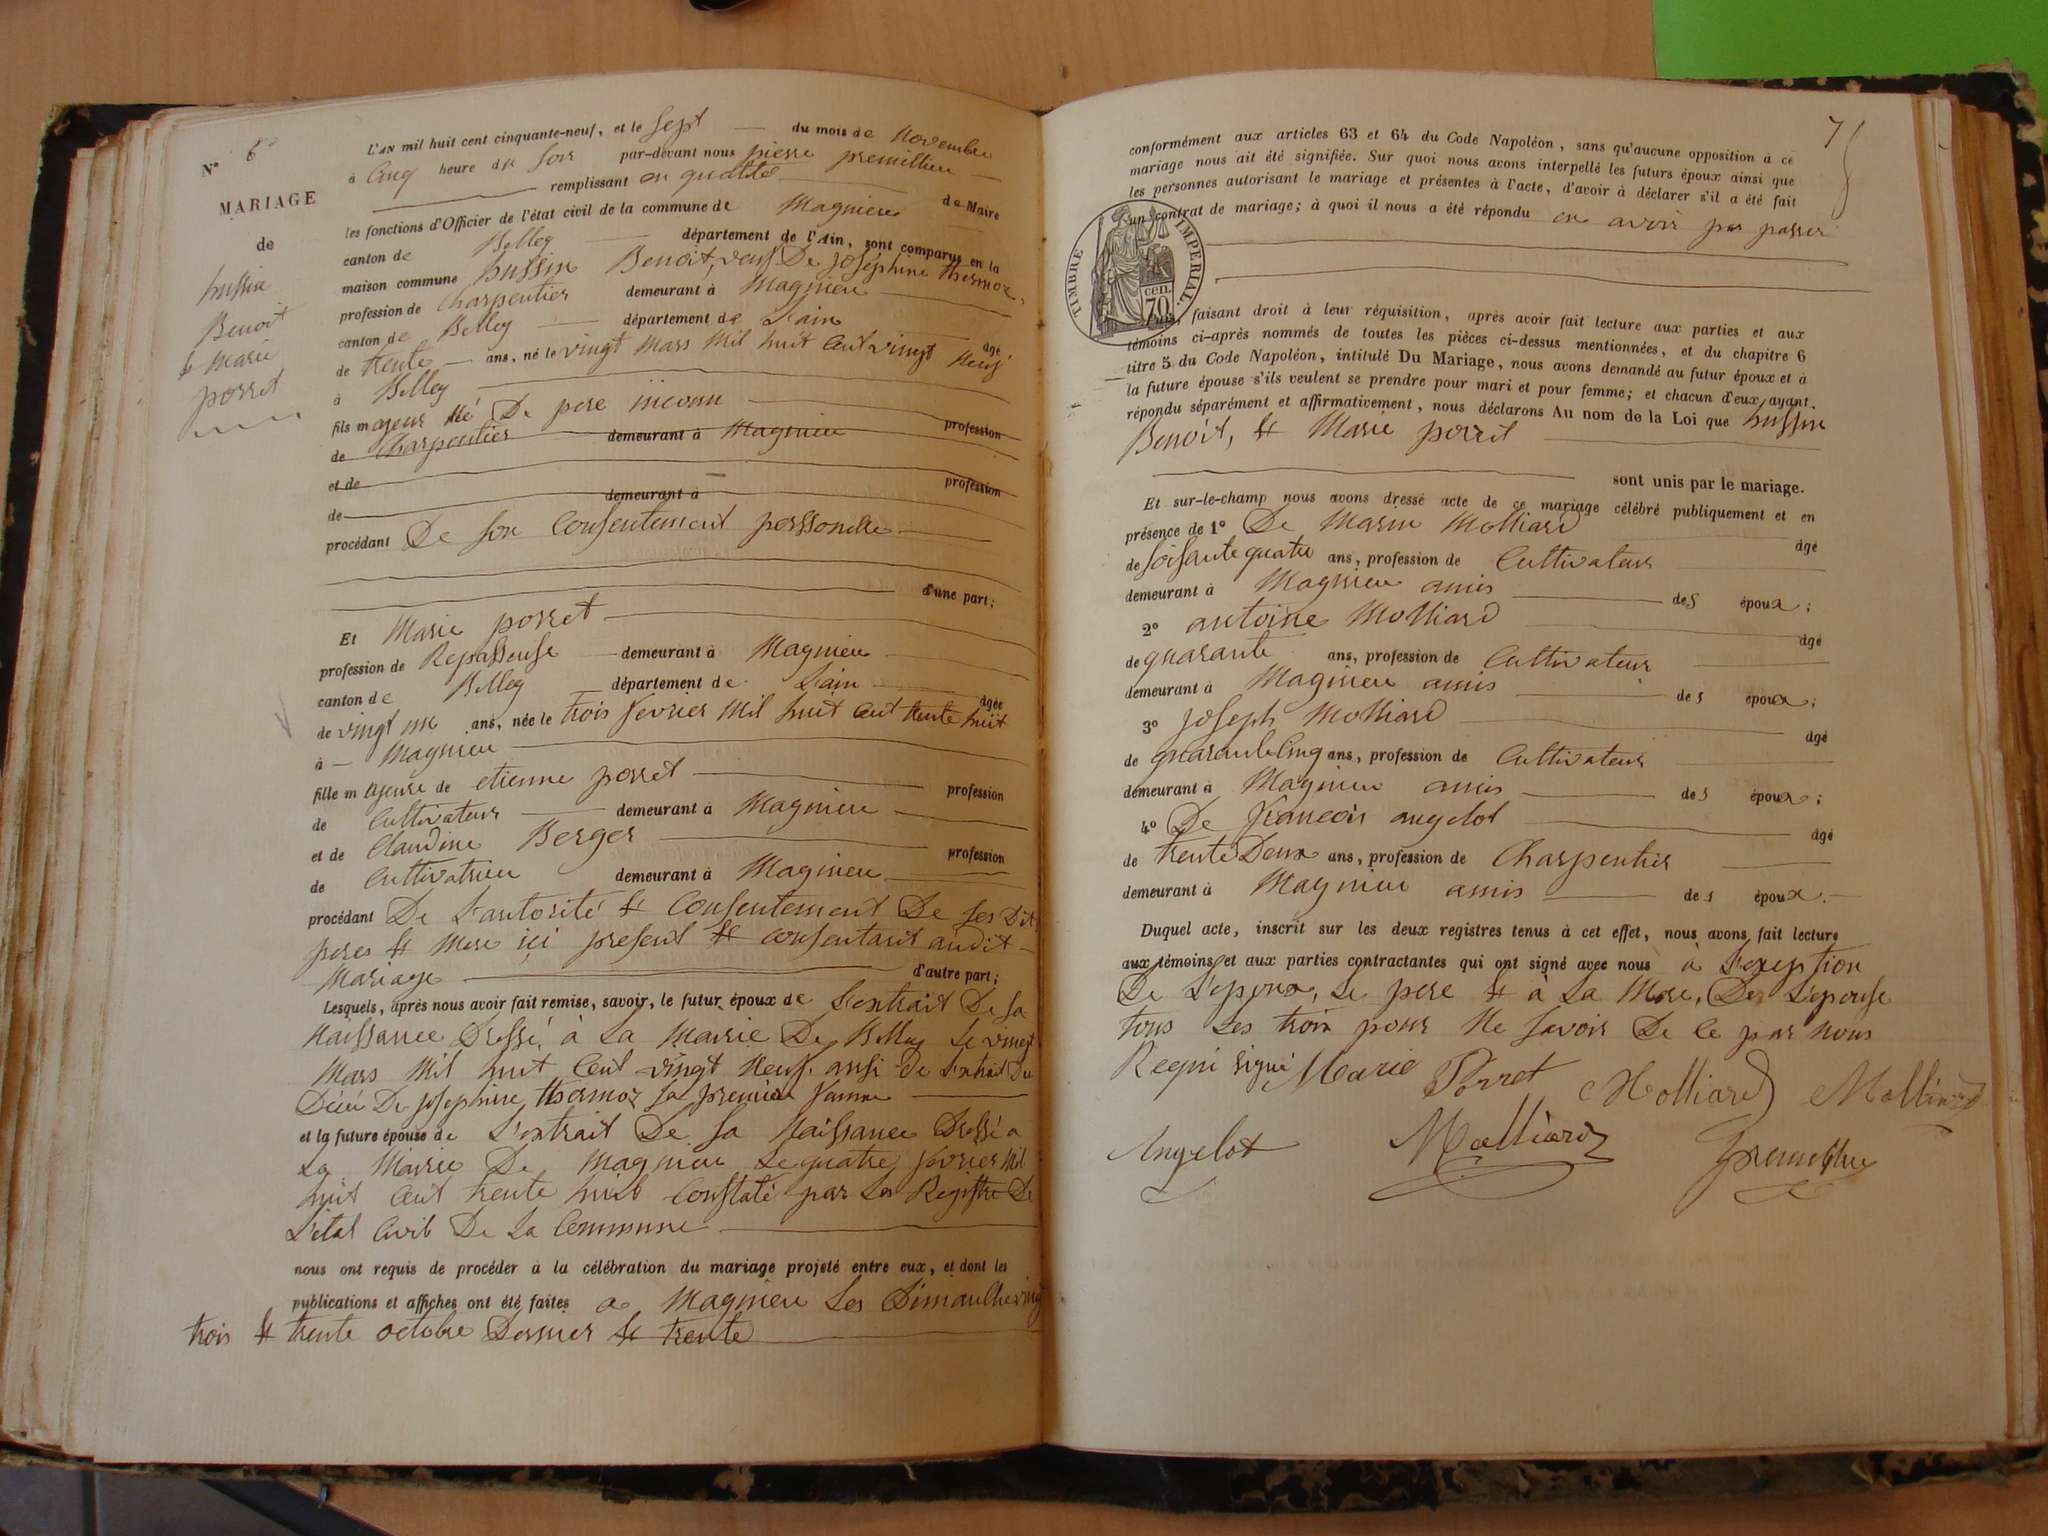 N° 6
MARIAGE
de
hussin
Benoit
& Marie
porret
L'AN mil huit cent cinquante-neuf, et le sept du mois de novembre
à Cinq heure du soir par-devant nous pierre premillieu
remplissant en qualité de Maire
les fonctions d'Officier de l'état civil de la commune de Magnieu
canton de Belley département de l'Ain, sont comparus en la
maison commune hussin Benoit, veuf De Joséphine thermoz,
profession de Charpentier demeurant à Magnieu
canton de Belley département de L'ain âgé
de trente ans, né le vingt Mars Mil huit Cent vingt Neuf
à Belley
fils majeur Né De pere inconnu profession
de Charpentier demeurant à Magnieu
et de profession
de demeurant à
procédant De son Consentement perssonelle
d'une part;
Et Marie porret
profession de Repasseuse demeurant à Magnieu
canton de Belley département de L'ain âgée
de vingt un ans, née le trois fevrier Mil huit Cent trente huit
à Magnieu
fille majeure de etienne porret profession
de Cultivateur demeurant à Magnieu
et de Claudine Berger profession
de Cultivatrice demeurant à Magnieu
procédant De L'autorité & Consentement De ses Dit
peres & Mere içi present & consentant audit
Mariage d'autre part;
Lesquels, après nous avoir fait remise, savoir, le futur époux de L'extrait De sa
Naissance Dressé à La Mairie De Belley Le vingt
Mars Mil huit Cent vingt Neuf ausi De L'extrait Du
Décé De Josephine thermoz sa premiere famme
et la future épouse de L'extrait De sa Naissance Dressé a
La Mairie De Magnieu Le quatre fevrier Mil
huit Cent trente huit Constaté par Les Registre De
L'état Civil De La Commune
nous ont requis de procéder à la célébration du mariage projeté entre eux, et dont les
publications et affiches ont été faites a Magnieu Les Dimanche vingt
trois & trente octobre Dernier & trente
7
conformément aux articles 63 et 64 du Code Napoléon, sans qu'aucune opposition à ce
mariage nous ait été signifiée. Sur quoi nous avons interpellé les futurs époux ainsi que
les personnes autorisant le mariage et présentes à l'acte, d'avoir à déclarer s'il a été fait
un contrat de mariage; à quoi il nous a été répondu en avoir pas passer
TIMBRE IMPÉRIAL.
70 cen.
faisant droit à leur réquisition, après avoir fait lecture aux parties et aux
témoins ci-après nommés de toutes les pièces ci-dessus mentionnées, et du chapitre 6
titre 5 du Code Napoléon, intitulé Du Mariage, nous avons demandé au futur époux et à
la future épouse s'ils veulent se prendre pour mari et pour femme; et chacun d'eux ayant
répondu séparément et affirmativement, nous déclarons Au nom de la Loi que hussin
Benoit, & Marie porret
sont unis par le mariage.
Et sur-le-champ nous avons dressé acte de ce mariage célébré publiquement et en
présence de 1° De Marin Molliard âgé
de soisante quatre ans, profession de Cultivateur
demeurant à Magnieu amis des époux;
2° antoine Molliard âgé
de quarante ans, profession de Cultivateur
demeurant à Magnieu amis des époux;
3° Joseph Molliard âgé
de quarante Cinq ans, profession de Cultivateur
demeurant à Magnieu amis des époux;
4° De françois angelot âgé
de trente Deux ans, profession de Charpentier
demeurant à Magnieu amis des époux.
Duquel acte, inscrit sur les deux registres tenus à cet effet, nous avons fait lecture
aux témoins et aux parties contractantes qui ont signé avec nous à L'exeption
De L'epoux, Le pere & à La Mere, De L'epouse
tous Les trois pour Ne savoir De Ce par nous
Requi signé Marie Porret Molliard Molliard
Angelot Molliard premillieu